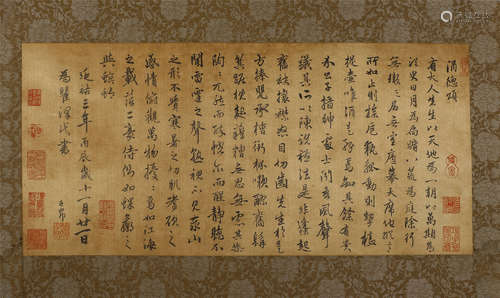 酒德頌
有大人先生以天地為一朝以萬期為
須臾日月為扃牖八荒為庭除行
無轍跡居無室廬幕天席地縱意
所如止則操卮執觚動則挈榼
提壺唯酒是務焉知其餘有貴
介公子搢紳處士聞吾風聲
議其所以陳說禮法是非鋒起
奮袂攘襟怒目切齒先生於是
方捧甖承槽銜杯漱醪奮髯
箕踞枕麴藉糟無思無慮其樂
陶陶兀然而醉豁爾而醒靜聽不
聞雷霆之聲熟視不見泰山
之形不覺寒暑之切肌嗜欲之
感情俯觀萬物擾擾焉如江海
之載浮萍二豪侍側焉如蜾蠃之
與螟蛉
延祐三年丙辰歲十一月廿一日
為瞿澤民書
子昂